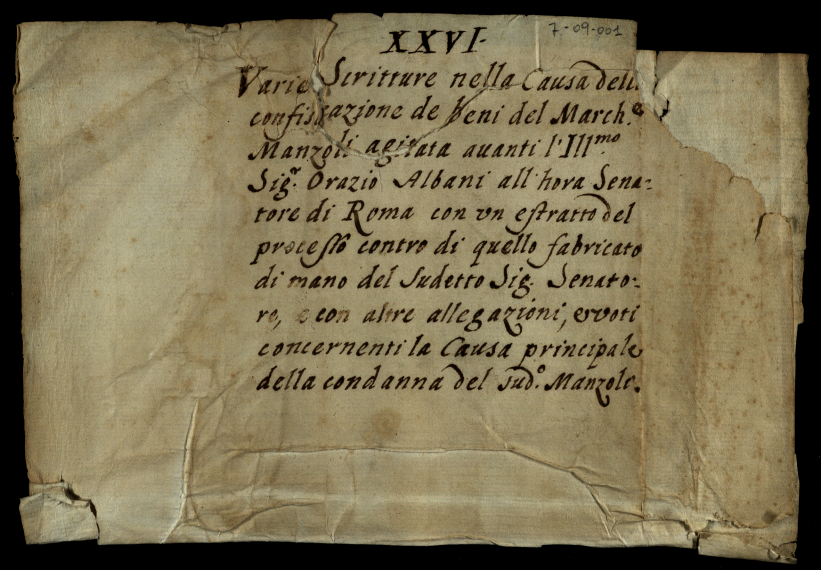 7-09-001
XXVI-
Varie Scritture nella Causa dell
confiscazione de Beni del March.e
Manzoli agitata auanti l'Ill.mo
Sig.r Orazio Albani all'hora Sena=
tore di Roma con vn estratto del
processo contro di quello fabricato
di mano del sudetto Sig. Senato=
re, e con altre allegazioni, e voti
concernenti la Causa principale
della condanna del sud.o Manzoli.